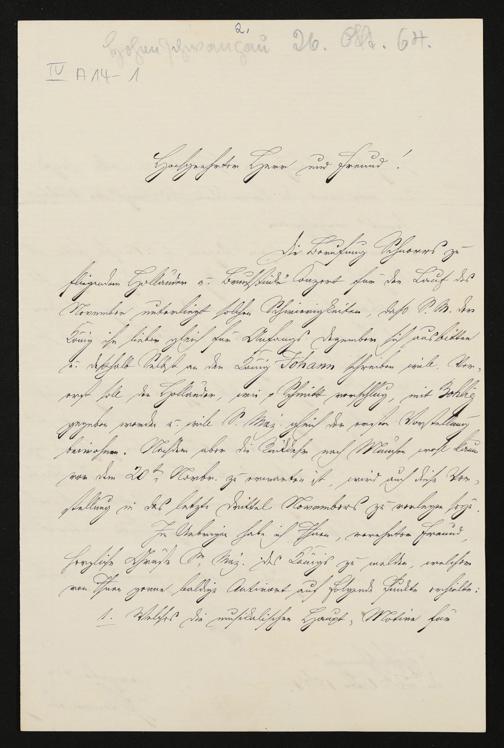 2.
Hohenschwangau 26. Okt. 64.
IV A 14-1
Hochgeehrter Herr und Freund!
Die Berufung Schnorrs zu
fliegenden Holländer u. Bruchstücke Conzert für den Lauf des
November unterliegt solchen Schwierigkeiten, daß S. M. der
König ihn lieber gleich für Anfangs Dezember sich ausbitten
u. deßhalb selbst an den König Johann schreiben will. Vor-
erst soll der Holländer, wie Schmitt vorschlug, mit
gegeben werden u. will S. Maj. gleich der ersten Vorstellung
beiwohnen. Nachdem aber die Rückkehr nach München wohl kaum
vor dem 20ten Novbr. zu erwarten ist, wird auch diese Vor-
stellung in das letzte Drittel Novembers zu verlegen sein.
Im Uebrigen habe ich Ihnen, verehrter Freund,
herzliche Grüße Sr. Maj. des Königs zu melden, welcher
von Ihnen gerne baldige Antwort auf folgende Punkte erhielte:
1. Welches die musikalischen Haupt-Motive für